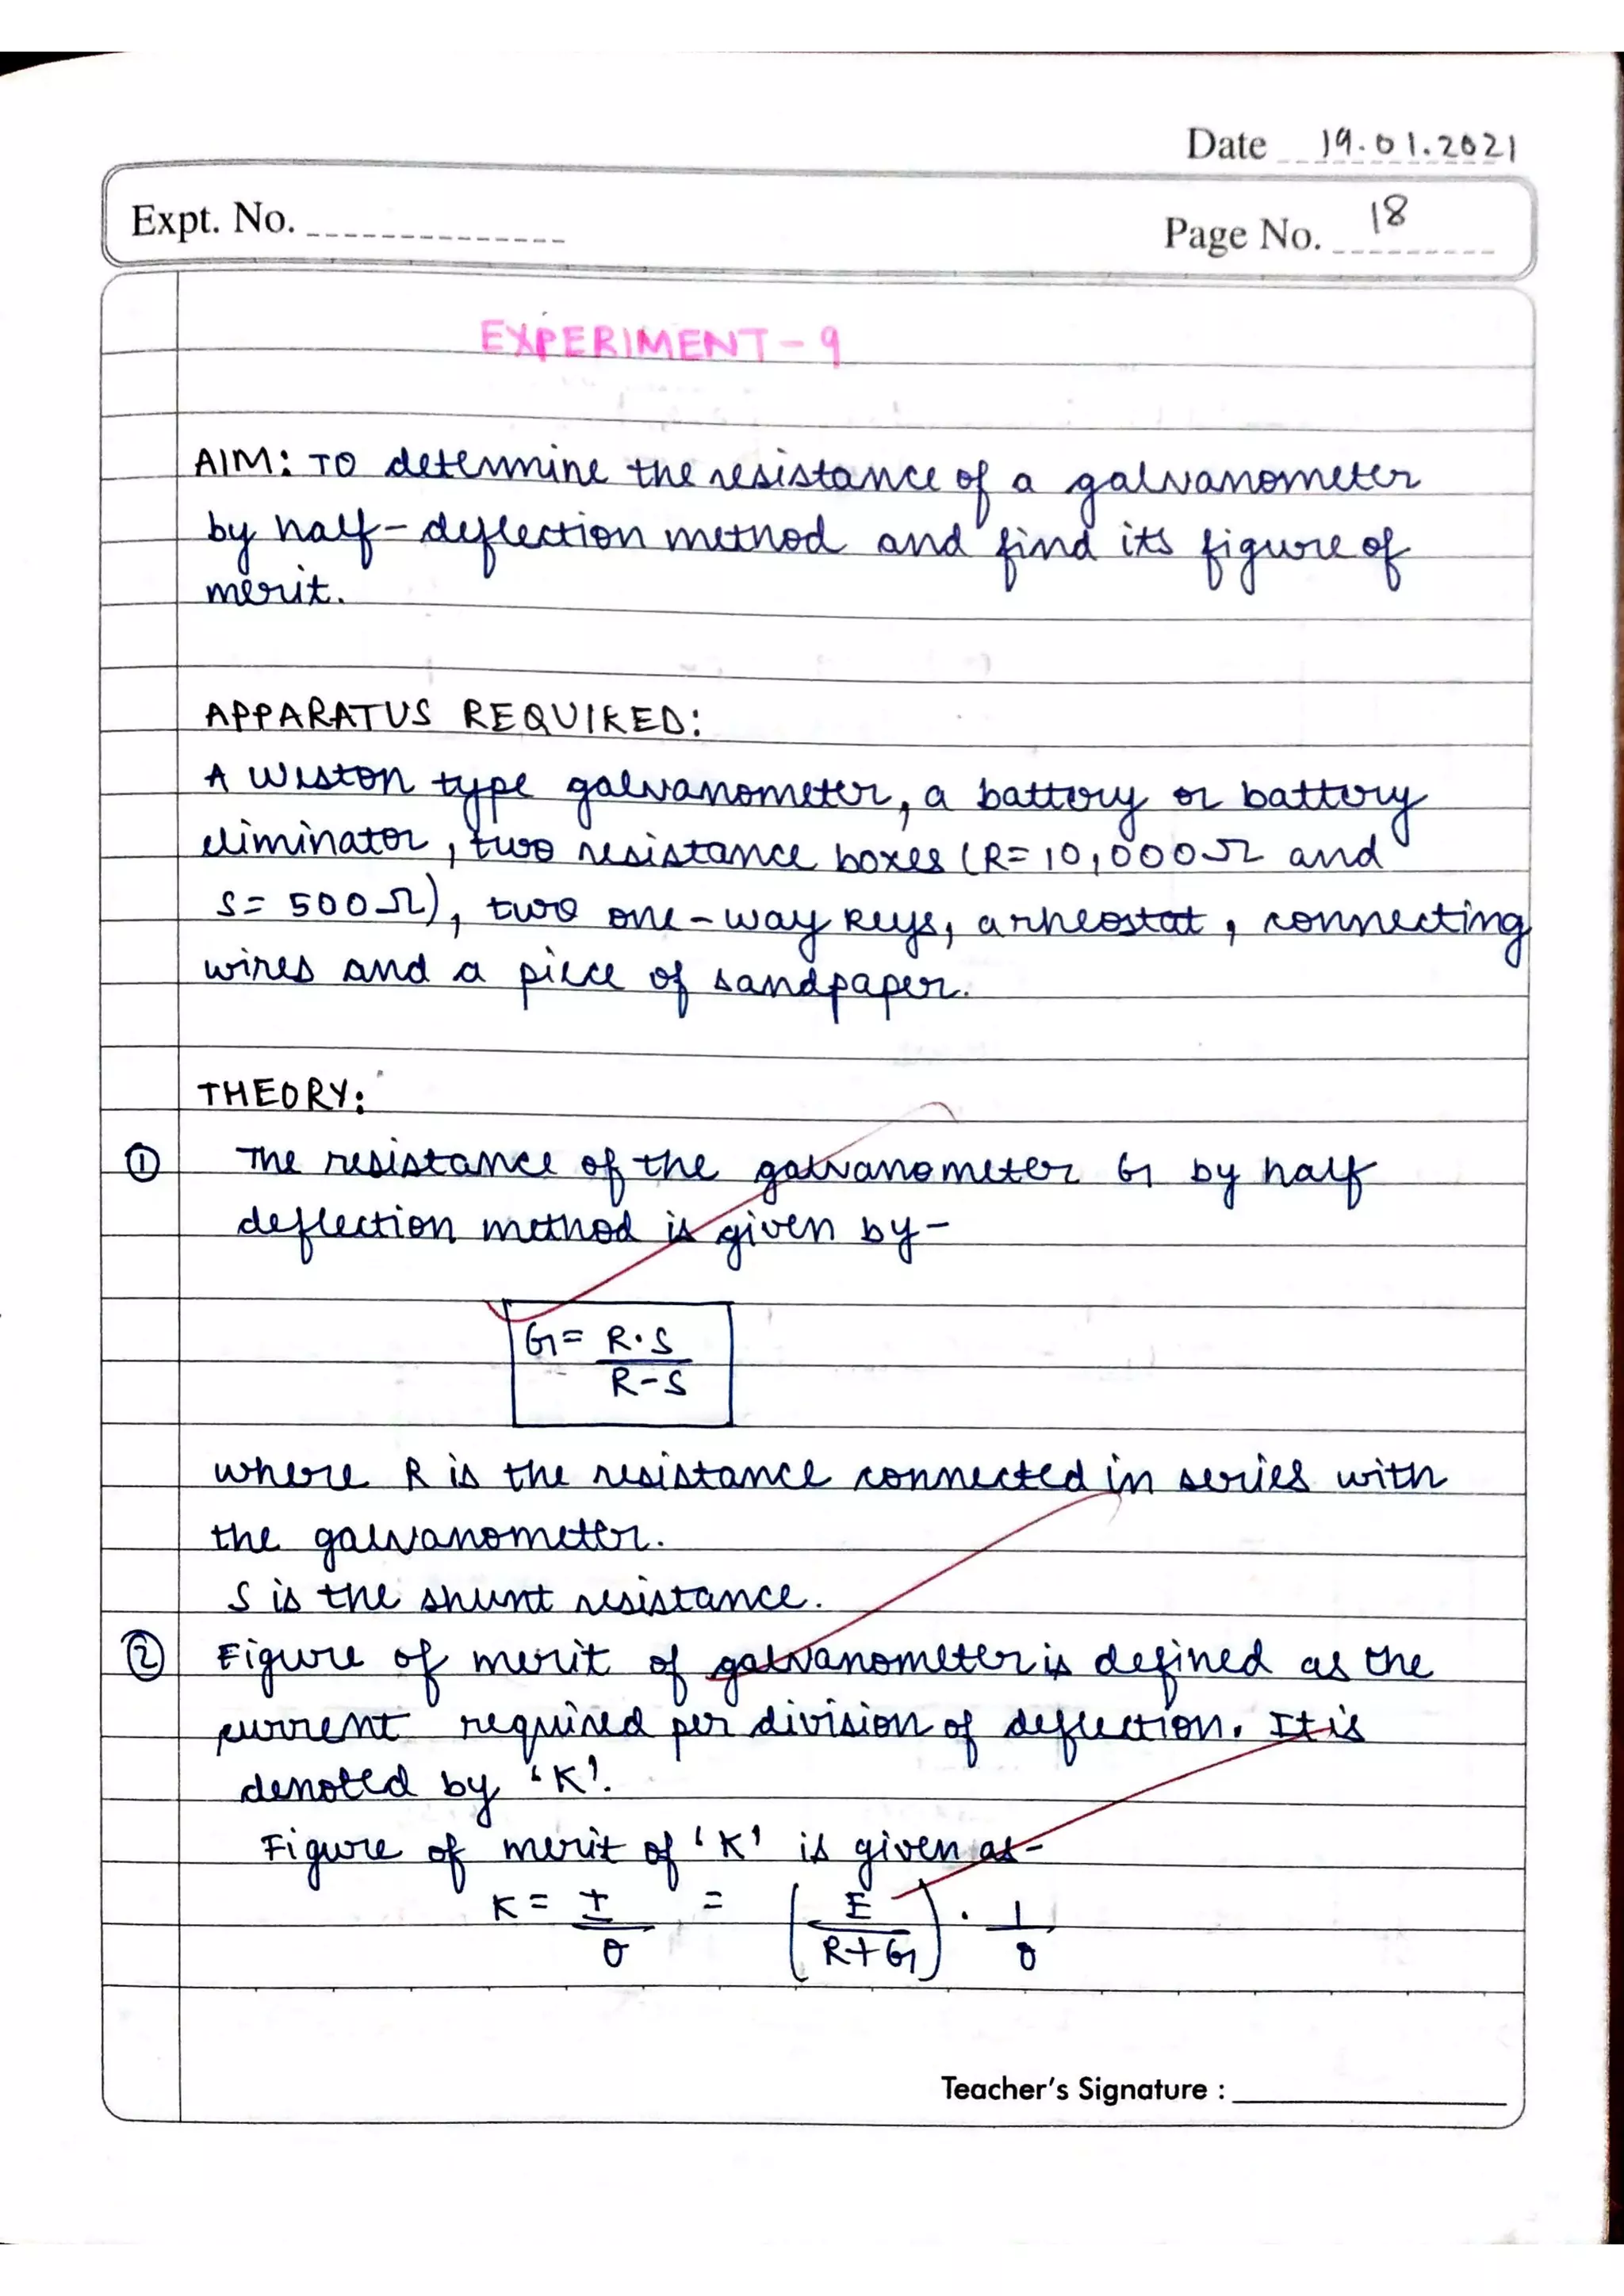 Date 19.01.2021
Expt. No.
Page No. 18
EXPERIMENT-9
AIM: TO determine the resistance of a galvanometer
by half-deflection method and find its figure of
merit.
APPARATUS REQUIRED:
A Weston type galvanometer, a battery or battery
eliminator, two resistance boxes (R= 10,000Ω and
S= 500Ω), two one-way keys, a rheostat, connecting
wires and a piece of sandpaper.
THEORY:
① The resistance of the galvanometer G by half
deflection method is given by-
G= R·S
R-S
where R is the resistance connected in series with
the galvanometer.
S is the shunt resistance.
② Figure of merit of galvanometer is defined as the
current required per division of deflection. It is
denoted by 'K'.
Figure of merit of 'K' is given as-
K= I/θ = (E/R+G) · 1/θ
Teacher's Signature :